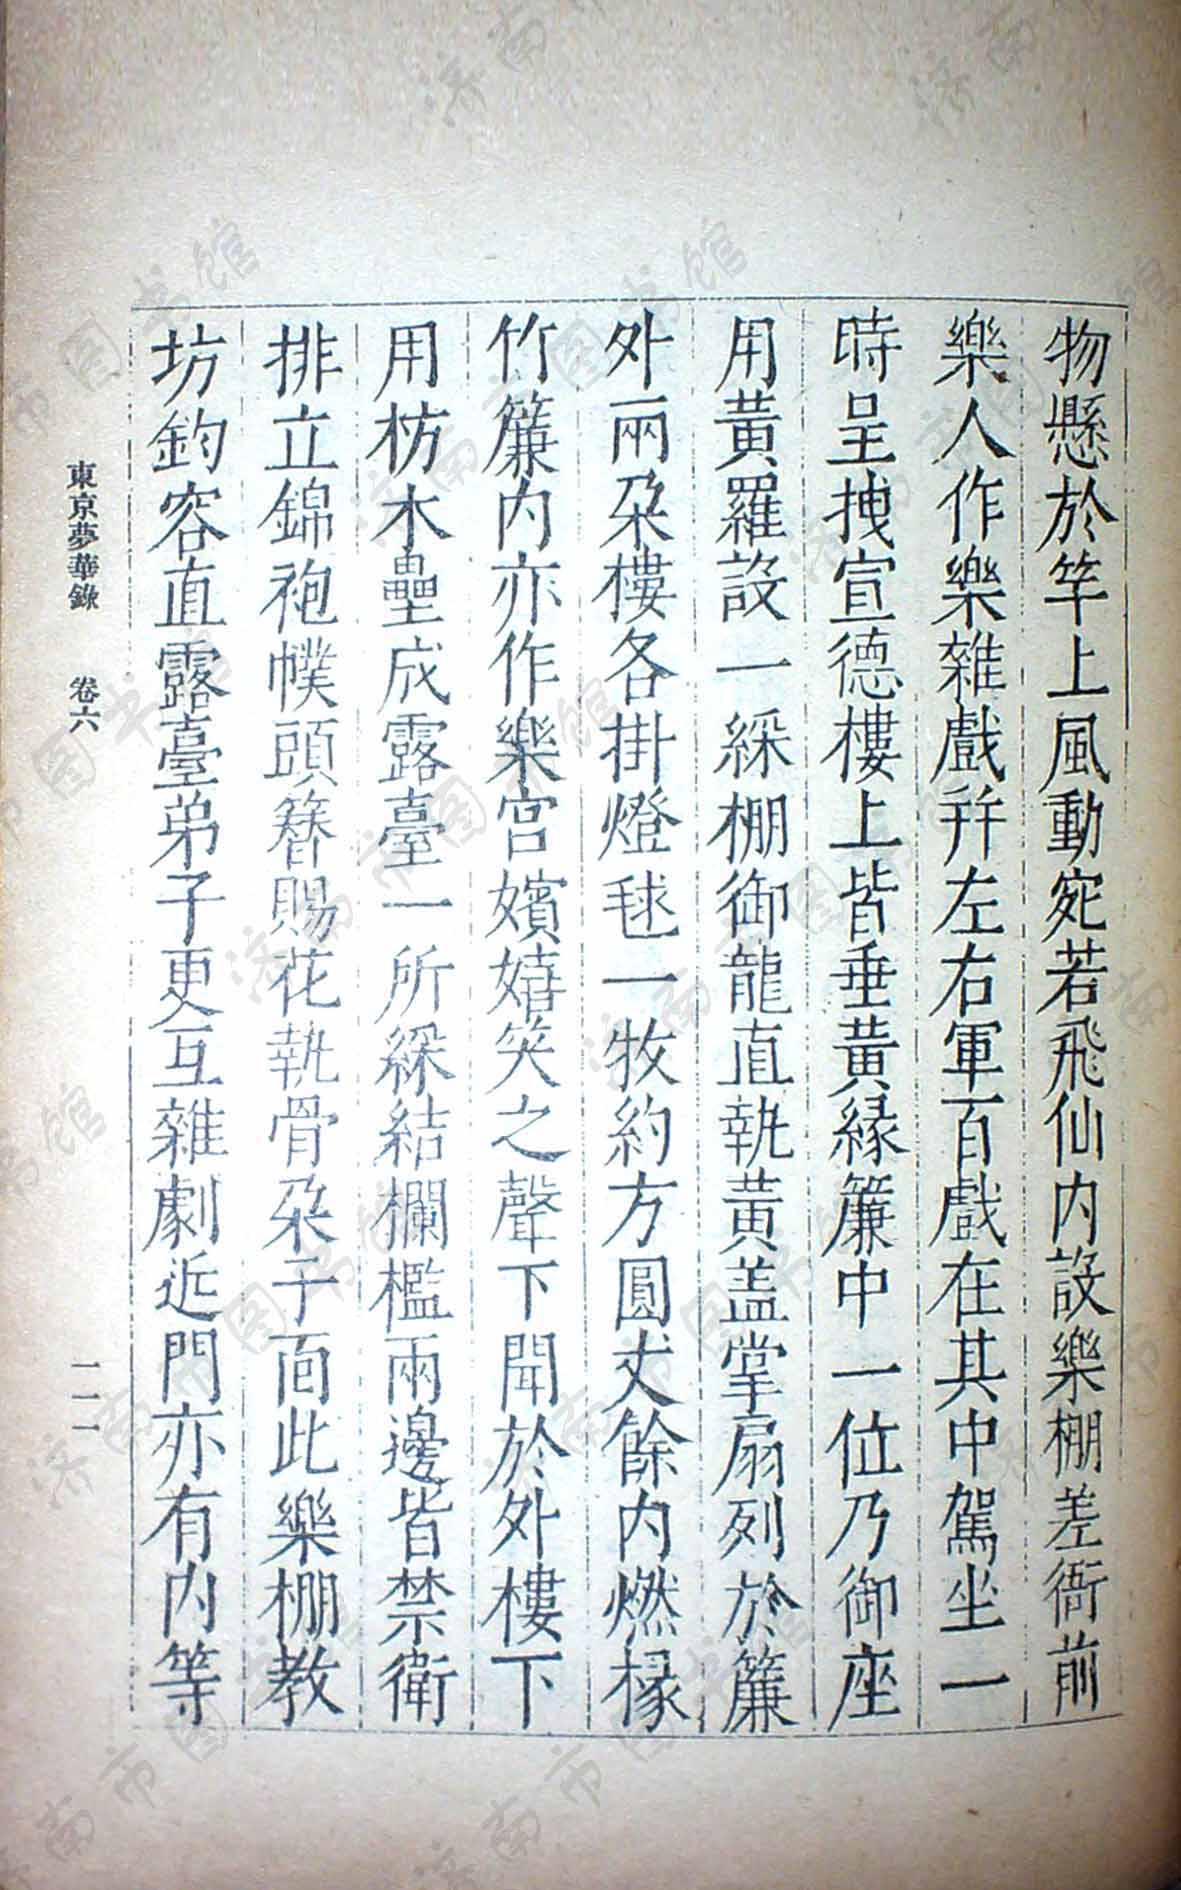 物懸於竿上風動宛若飛仙内設樂棚差衙前
樂人作樂雜戲并左右軍百戲在其中駕坐一
時呈拽宣德樓上皆垂黃緣簾中一位乃御座
用黃羅設一綵棚御龍直執黃盖掌扇列於簾
外兩朶樓各掛燈毬一牧約方圓丈餘内燃椽
竹簾内亦作樂宫嬪嬉笑之聲下聞於外樓下
用枋木壘成露臺一所綵結欄檻兩邊皆禁衛
排立錦袍幞頭簪賜花執骨朶子面此樂棚教
坊鈞容直露臺弟子更互雜劇近門亦有内等
東京夢華錄 卷六 一一一
济南市图书馆